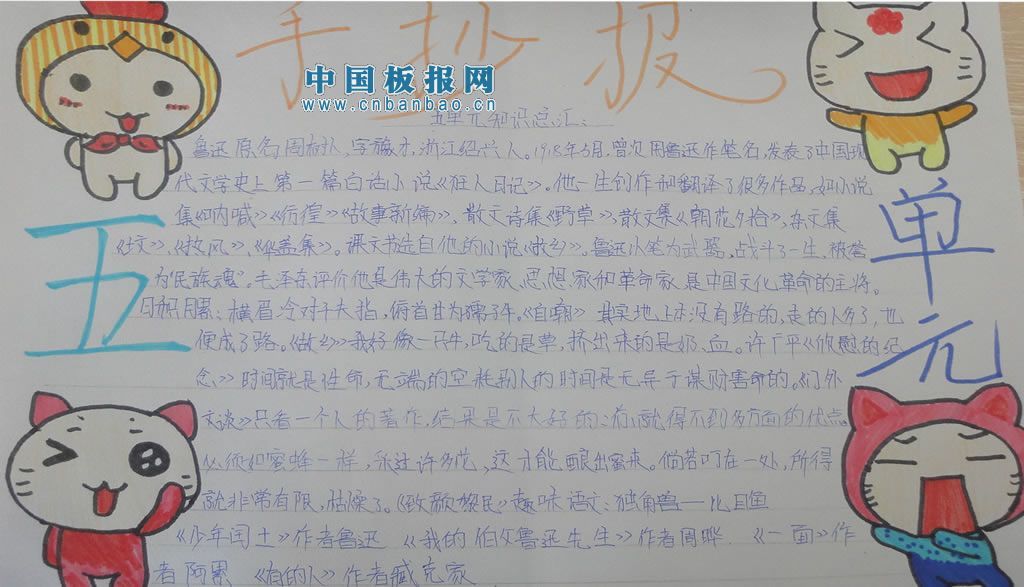 手抄报。
中国板报网
www.cnbanbao.cn
五单元知识总汇:
五
单元
鲁迅原名周树人,字豫才,浙江绍兴人。1918年5月,首次用鲁迅作笔名,发表了中国现
代文学史上第一篇白话小说《狂人日记》。他一生创作和翻译了很多作品,如小说
集《呐喊》《彷徨》《故事新编》、散文诗集《野草》、散文集《朝花夕拾》,杂文集
《坟》、《热风》、《华盖集》。课文节选自他的小说《故乡》。鲁迅以笔为武器,战斗了一生,被誉
为"民族魂"。毛泽东评价他是伟大的文学家、思想家和革命家是中国文化革命的主将。
日积月累:横眉冷对千夫指,俯首甘为孺子牛。《自嘲》其实地上本没有路的,走的人多了,也
便成了路。《故乡》我好像一只牛,吃的是草,挤出来的是奶、血。许广平《欣慰的纪
念》时间就是性命,无端的空耗别人的时间是无异于谋财害命的。《门外
文谈》只看一个人的著作,结果是不大好的:你就得不到多方面的优点。
必须如蜜蜂一样,采过许多花,这才能酿出蜜来。倘若叮在一处,所得
就非常有限,枯燥了。《致颜黎民》趣味语文:独角兽——比目鱼
《少年闰土》作者鲁迅 《我的伯父鲁迅先生》作者周晔. 《一面》作
者阿累 《有的人》作者臧克家